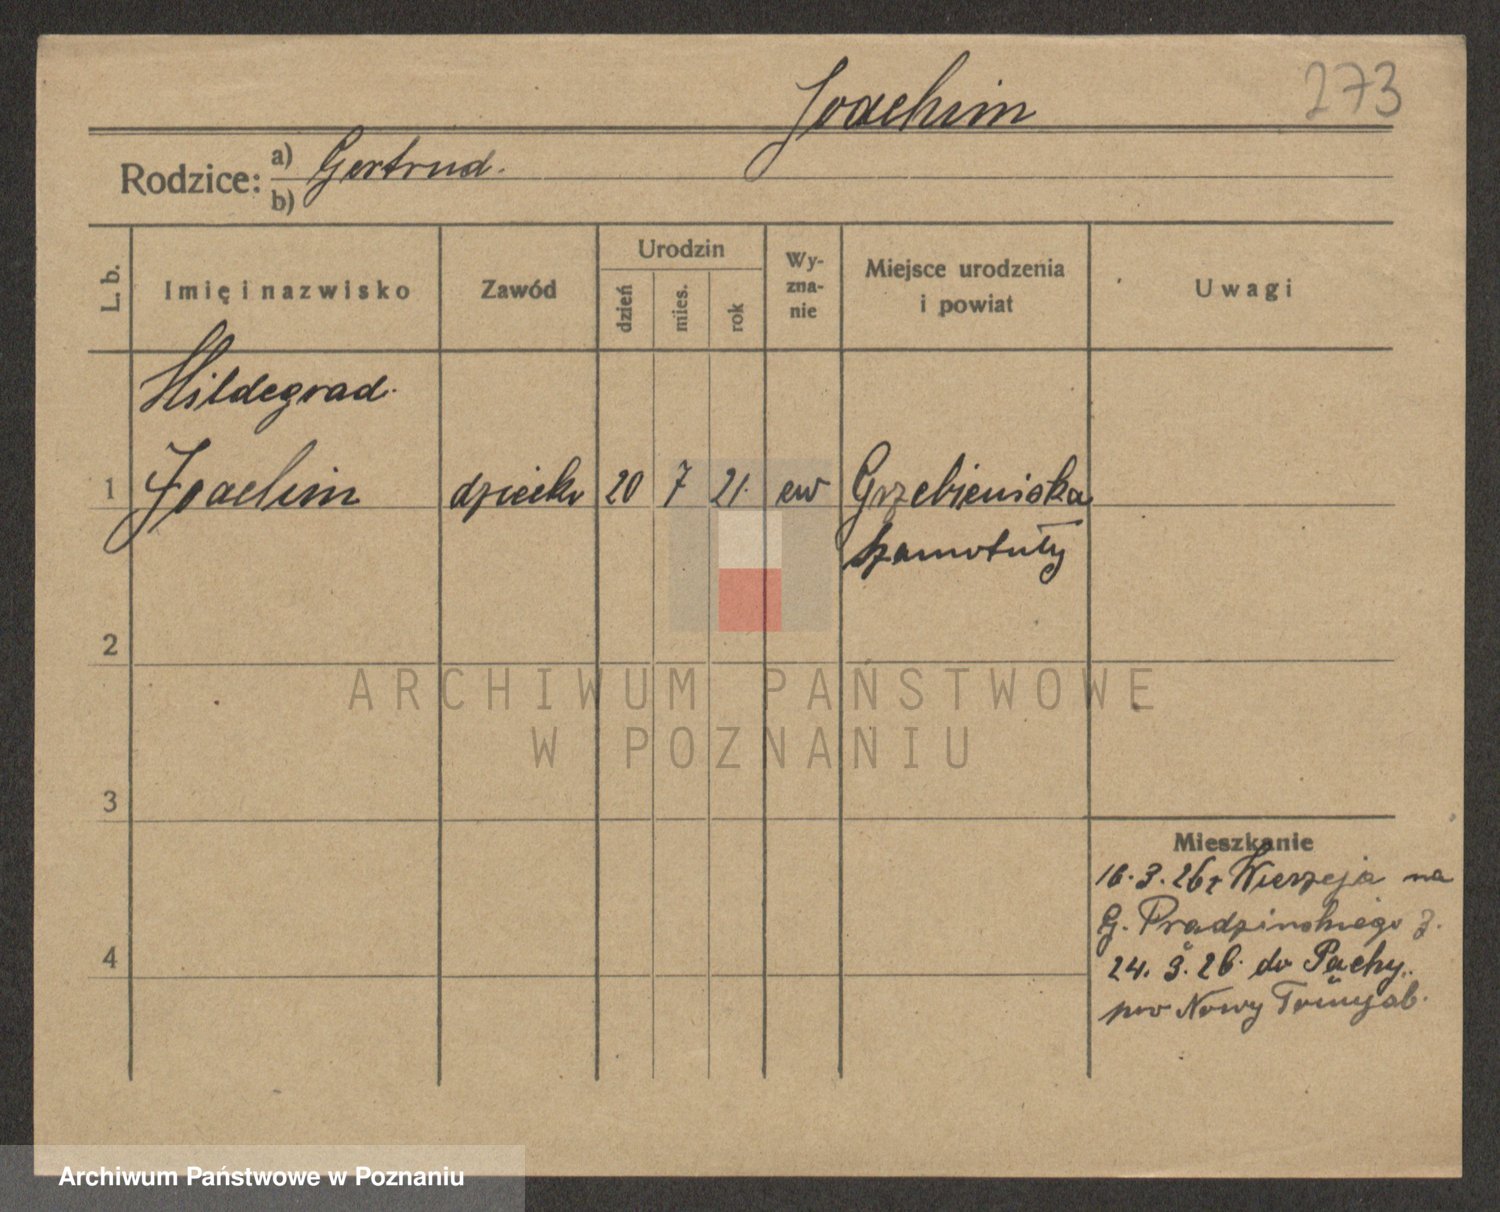 273
Joachim
Rodzice: a) Gertrud.
b)
L. b. Imię i nazwisko Zawód Urodzin dzień mies. rok Wy-zna-nie Miejsce urodzenia i powiat Uwagi
Hildegrad.
1 Joachim dziecko 20 7 21. ew Grzebieniska
Szamotuły
2
ARCHIWUM PAŃSTWOWE
W POZNANIU
3
Mieszkanie
16. 3. 26 z Wierzeja na
G. Prądzińskiego 7.
4
24. 3. 26. do Pachy
pow Nowy Tomyśl
Archiwum Państwowe w Poznaniu